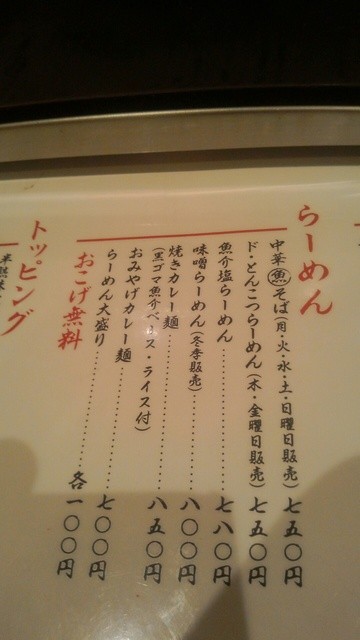 らーめん
中華魚そば（月・火・水・土・日曜日販売）七五〇円
ド・とんこつらーめん（木・金曜日販売）七五〇円
魚介塩らーめん…………七八〇円
味噌らーめん（冬季販売）…………八〇〇円
焼きカレー麺…………八五〇円
（黒ゴマ魚介ベース・ライス付）
おみやげカレー麺…………七〇〇円
らーめん大盛り…………各一〇〇円
おこげ無料
トッピング